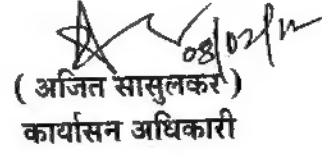 08/02/12
( अजित सासुलकर )
कार्यासन अधिकारी